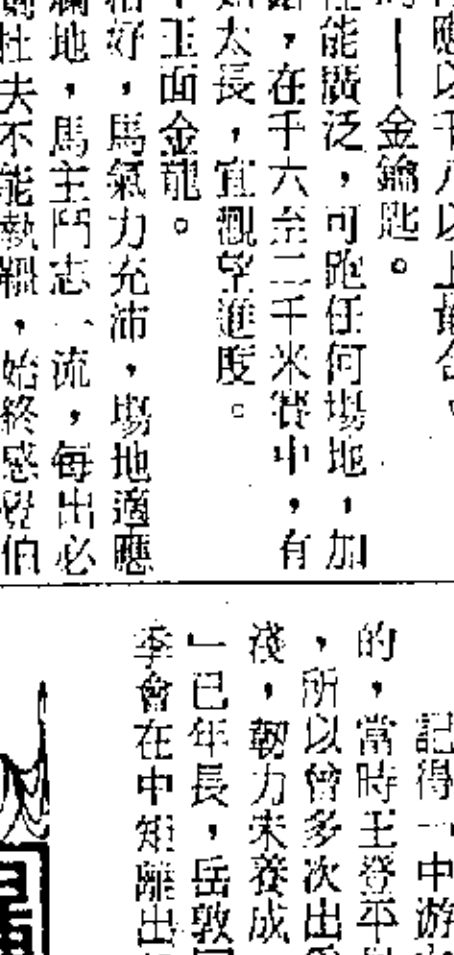 應以千八以上最合。
——金鑰匙。
性能廣泛，可跑任何場地，加
，在千六至二千米賽中，有
太長，宜觀望進度。
玉面金龍。
好，馬氣力充沛，場地適應
爛地，馬主鬥志一流，每出必
杜夫不能執韁，始終感覺伯
記得一中游
的，當時王登平
，所以曾多次出
淺，韌力未養成
」已年長，岳敦
季會在中距離出